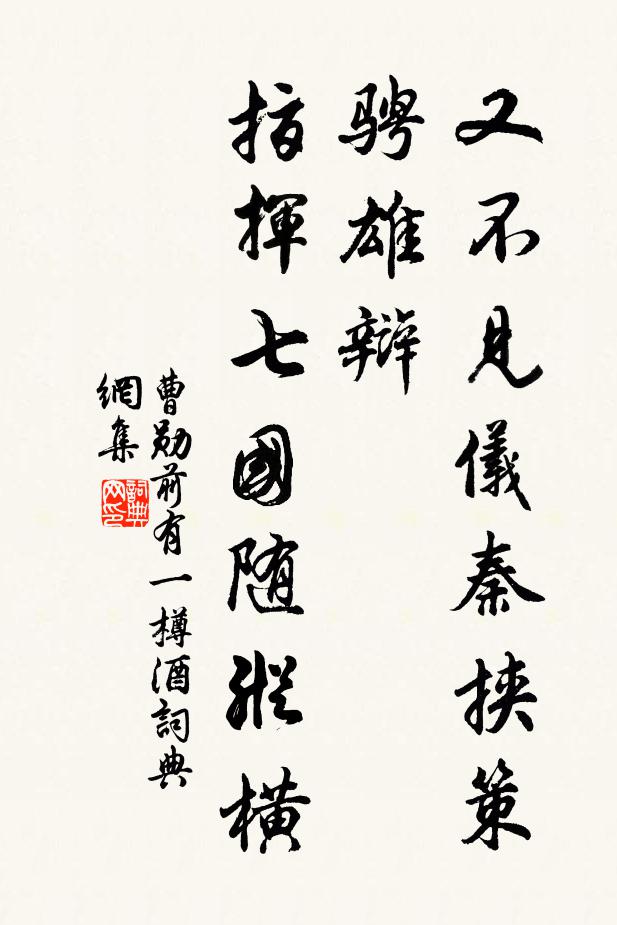 又不見儀秦挾策
骋雄辯
指揮七國随縱橫
曹勛前有一樽酒詞典
網集
詞典
网印